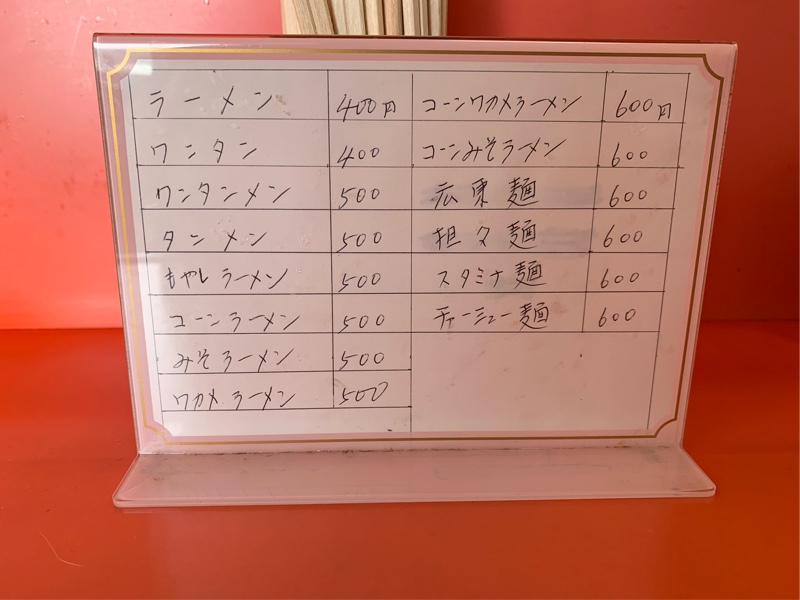 ラーメン 400円
ワンタン 400
ワンタンメン 500
タンメン 500
もやしラーメン 500
コーンラーメン 500
みそラーメン 500
ワカメラーメン 500
コーンワカメラーメン 600円
コーンみそラーメン 600
広東麺 600
担々麺 600
スタミナ麺 600
チャーシュー麺 600